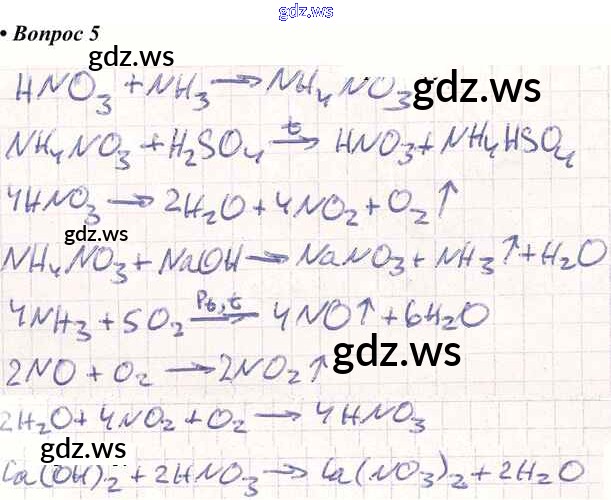 gdz.ws
• Вопрос 5
gdz.ws
HNO3 + NH3 → NH4NO3
gdz.ws
NH4NO3 + H2SO4 t→ HNO3 + NH4HSO4
4HNO3 → 2H2O + 4NO2 + O2↑
gdz.ws
NH4NO3 + NaOH → NaNO3 + NH3↑ + H2O
4NH3 + 5O2 Pt,t→ 4NO↑ + 6H2O
gdz.ws
2NO + O2 → 2NO2↑
2H2O + 4NO2 + O2 → 4HNO3
gdz.ws
Ca(OH)2 + 2HNO3 → Ca(NO3)2 + 2H2O